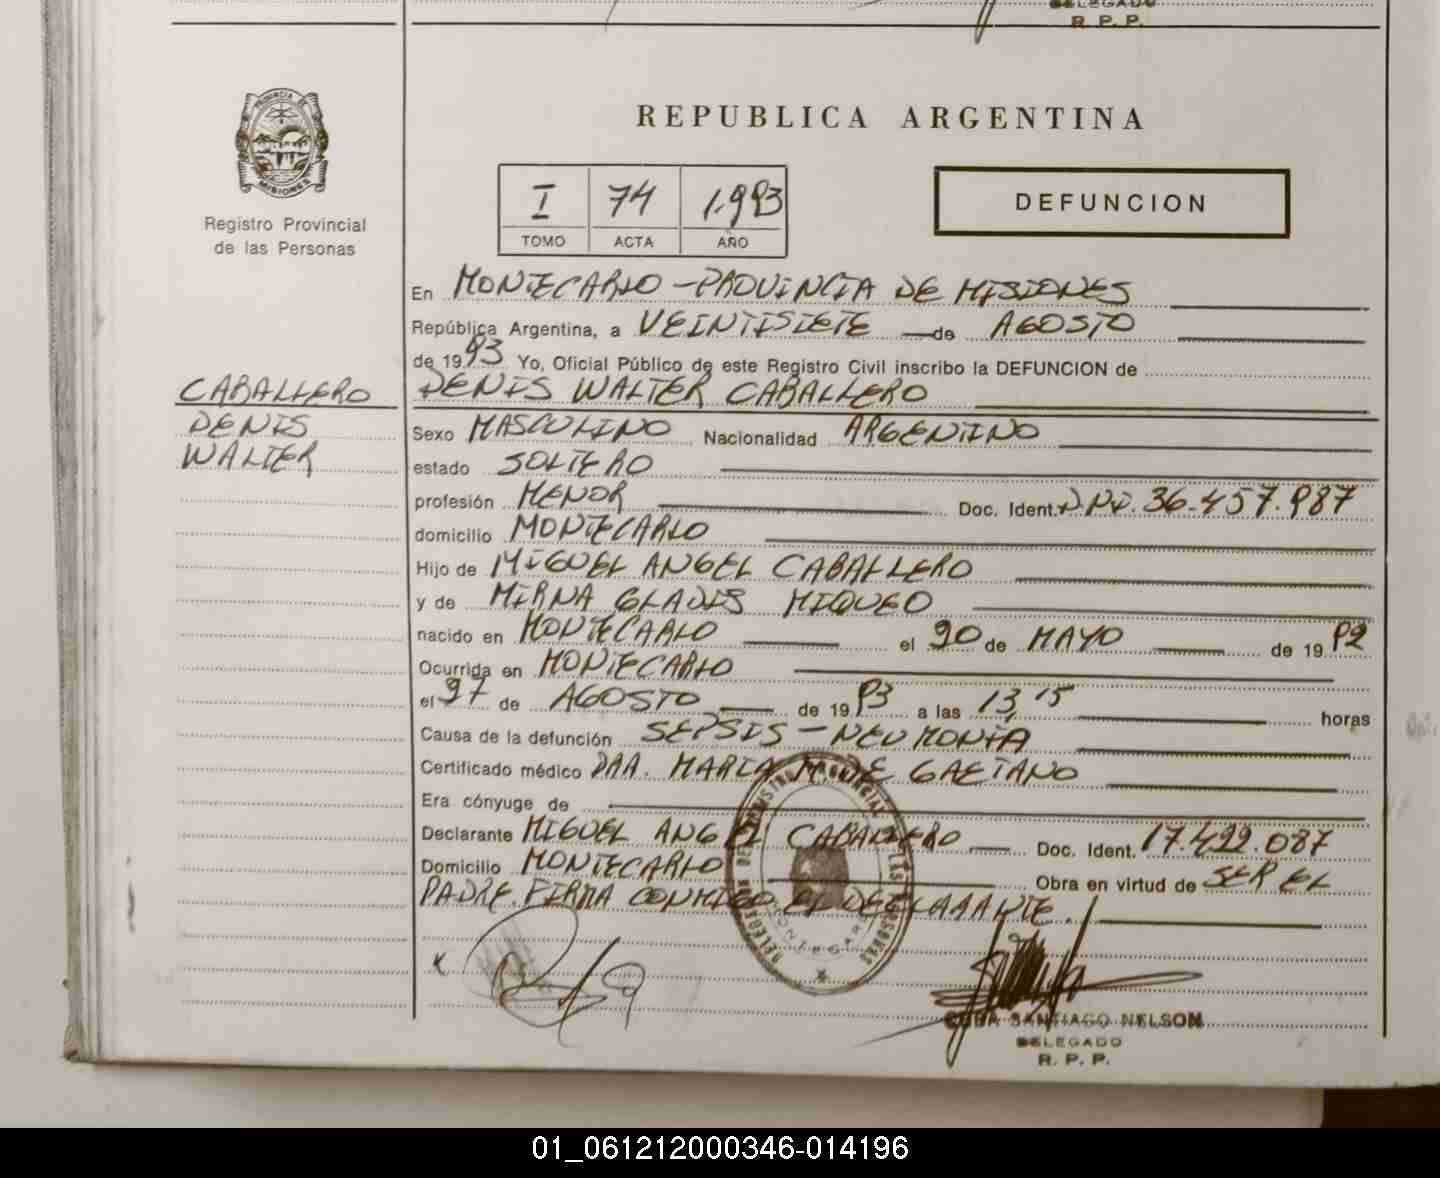 DELEGADO
R. P. P.
PROVINCIA DE
MISIONES
Registro Provincial
de las Personas
REPUBLICA ARGENTINA
I 74 1.993
TOMO ACTA AÑO
DEFUNCION
En MONTECARLO - PROVINCIA DE MISIONES
República Argentina, a VEINTISIETE de AGOSTO
de 1993 Yo, Oficial Público de este Registro Civil inscribo la DEFUNCION de
CABALLERO DENIS WALTER CABALLERO
DENIS
WALTER
Sexo MASCULINO Nacionalidad ARGENTINO
estado SOLTERO
profesión MENOR Doc. Ident. D.N.I. 36.457.987
domicilio MONTECARLO
Hijo de MIGUEL ANGEL CABALLERO
y de MIRNA GLADIS MIQUEO
nacido en MONTECARLO el 20 de MAYO de 1992
Ocurrida en MONTECARLO
el 27 de AGOSTO de 1993 a las 13,15 horas
Causa de la defunción SEPSIS - NEUMONÍA
Certificado médico DRA. MARIA M. DE GAETANO
Era cónyuge de
Declarante MIGUEL ANGEL CABALLERO Doc. Ident. 17.422.087
Domicilio MONTECARLO Obra en virtud de SER EL
PADRE. FIRMA CONMIGO EL DECLARANTE.
SANTIAGO NELSON
DELEGADO
R. P. P.
01_061212000346-014196